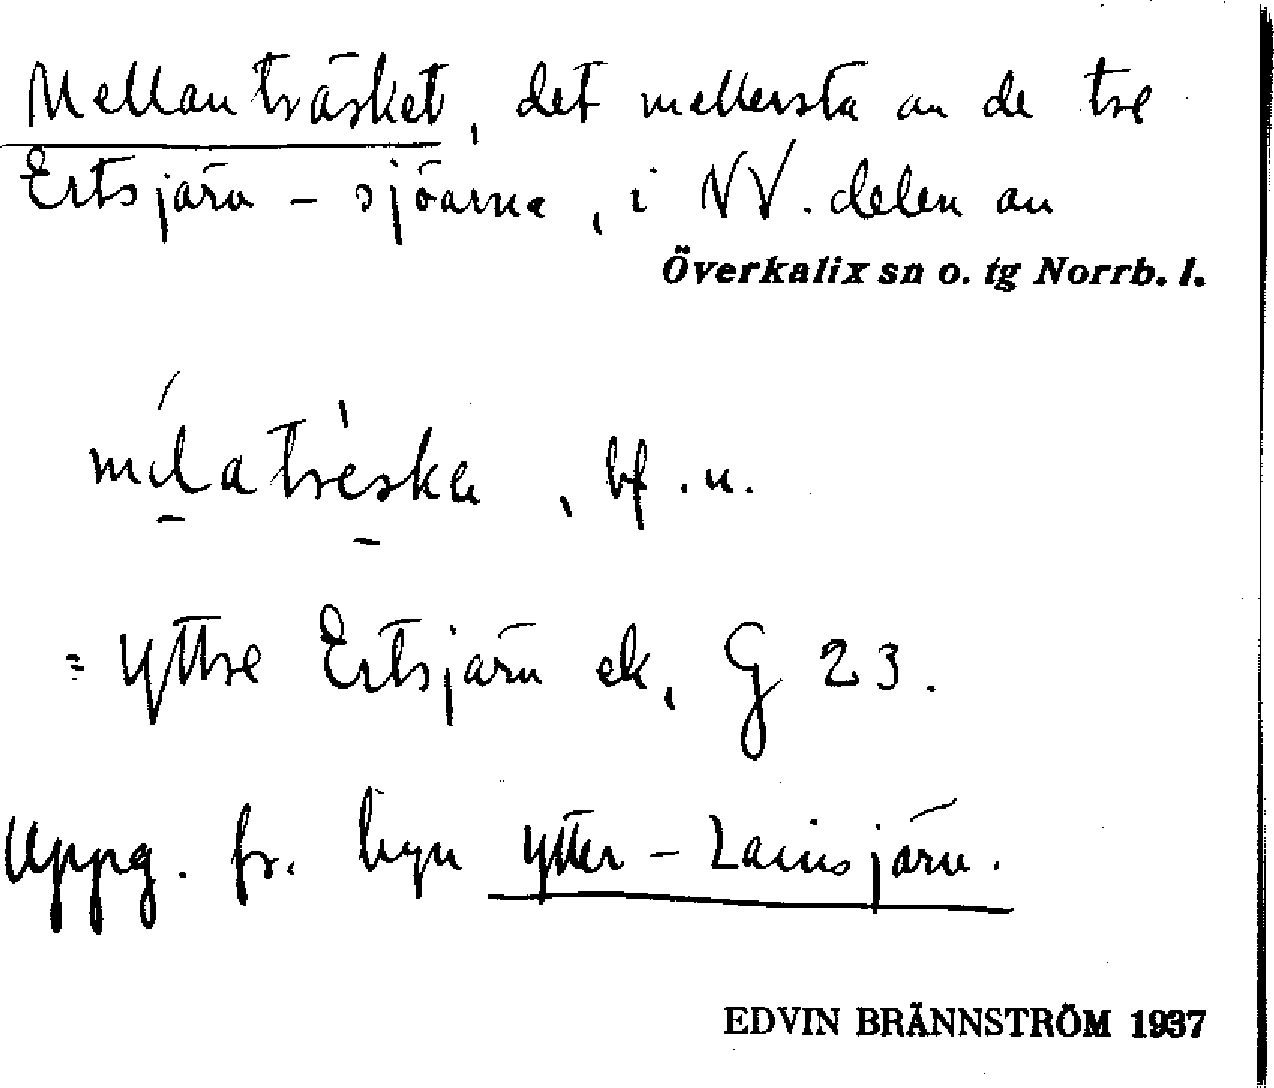 Mellanträsket, det mellersta av de tre
Ertsjärv-sjöarna, i NV. delen av
Överkalix sn o. tg Norrb. l.
bf. n.
= Yttre Ertsjärv ek, G 23.
Uppg. fr. byn Ytter-Lainsjärv.
EDVIN BRÄNNSTRÖM 1937